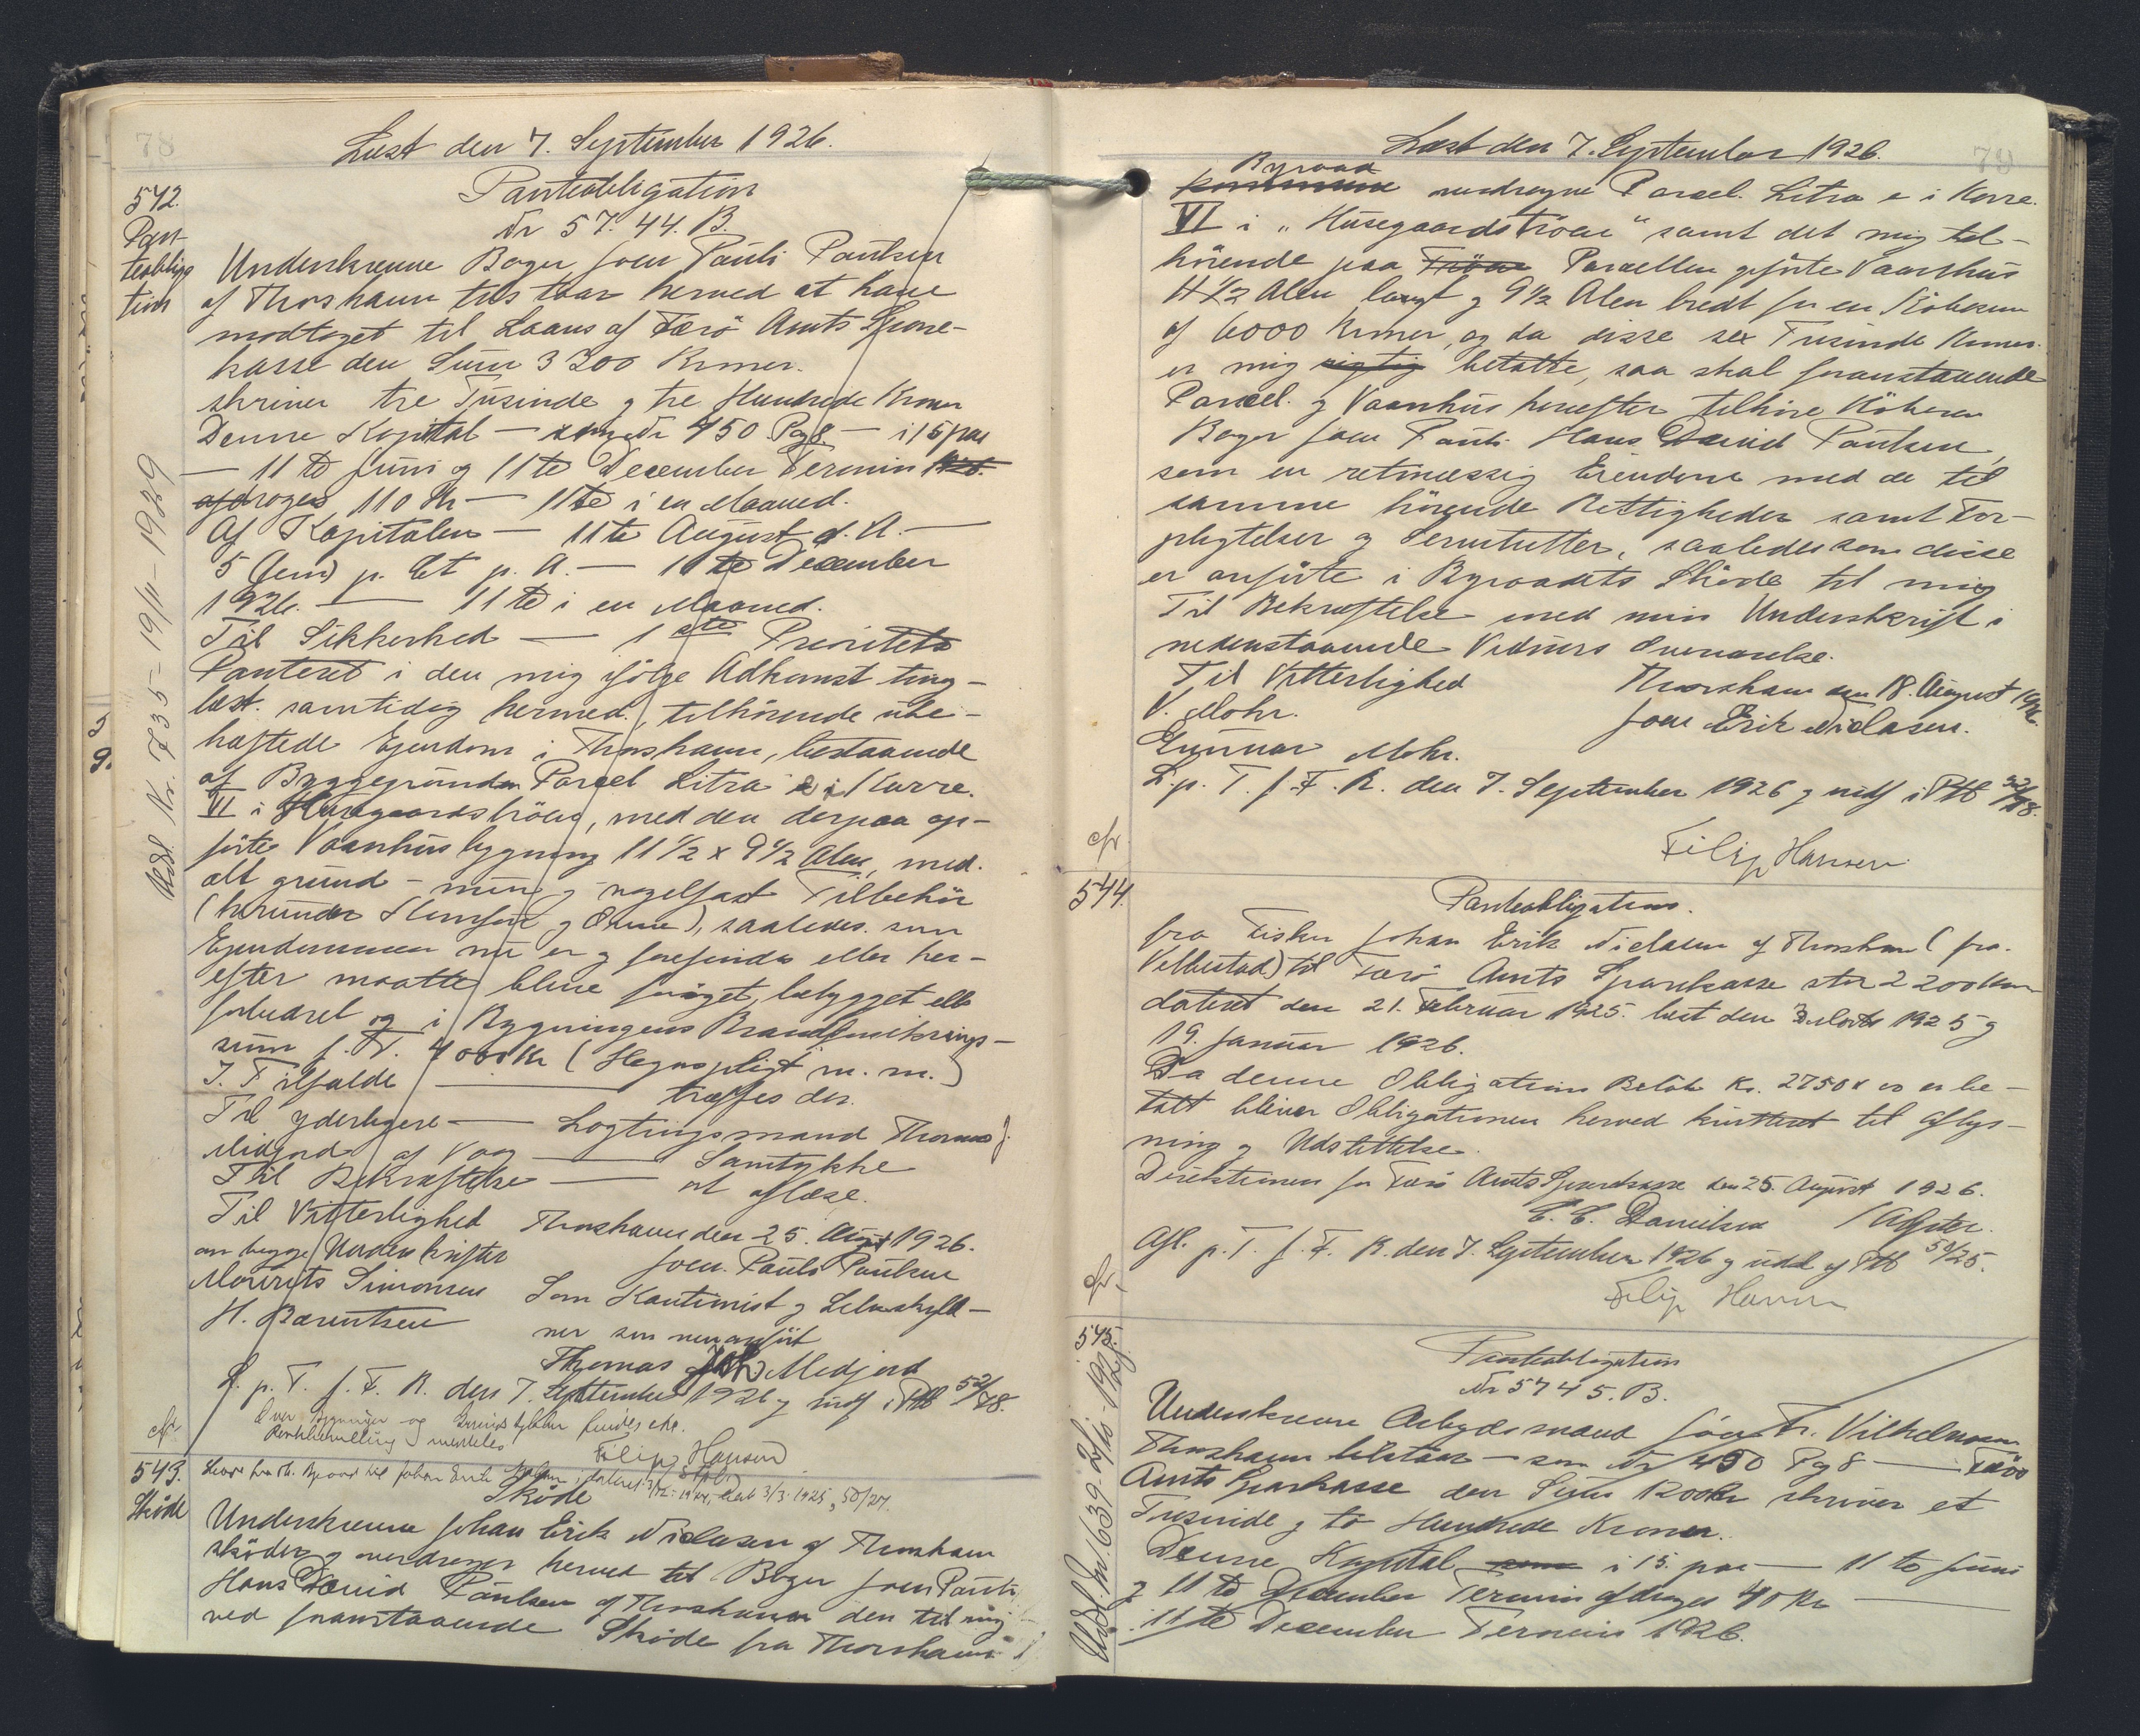 78
Læst den 7. September 1926.
542.
Pan-
teobliga
tion
Panteobligation
Nr 57.44.B.
Underskrevne Bager Joen Pauli Paulsen
af Thorshavn tilstaar herved at have
modtaget til Laans af Færö Amts Spare-
kasse den Sum 3300 Kroner.
skriver tre Tusinde g tre Hundrede Kroner
Denne Kapital — som Nr 450 Pag 8 — i 15 paa
— 11te Juni og 11te December Termin
afdrages 110 Kr — 11te i en Maaned.
Af Kapitalen — 11te August d. A. —
5 (fem) p. Ct p. A. — 11te December
1926. — 11te i en Maaned.
Til Sikkerhed — 1ste Prioritets
Panteret i den mig ifölge Adkomst ting-
læst. samtidig hermed, tilhörende ube-
hæftede Ejendom i Thorshavn, bestaaende
af Byggegrunden Parcel Litra e i Karre.
VI i Husegaardströen, med den derpaa op-
förte Vaanhusbygning 11 1/2 x 9 1/2 Alen, med.
alt grund- mur- g nagelfast Tilbehör
(herunder Komfur g Ovne), saaledes. som
Ejendommen nu er g forefindes eller her-
efter maatte blive foröget, bebygget ell
forbedret og i Bygningens Brandforsikrings-
sum f. T. 4000 Kr (Hegnspligt m. m.)
I. Tilfælde — træffes der.
Til yderligere — Lagtingsmand Thomas J.
Midjord af Vaag — Samtykke
Til Bekræftelse — at aflæse.
Til Vitterlighed Thorshavn den 25. August 1926.
om begge Underskrifter Joen. Pauli Paulsen
Mourits Simonsen Som Kautionist g Selvskyld-
H. Barentsen ner som nevnanfört
Thomas Joh. Midjord
L. p. T. f. F. R. den 7. September 1926 g indf i Ptb 52/78.
Over Bygninger og
meddeles
Filip Hansen
Udsl. Nr. 735 - 19/11 - 1929
cfr.
543.
Sköde
Sköde
Underskrevne Johan Erik Niclasen af Thorshavn
sköder g overdrager herved til Bager Joen Pauli
Hans David Paulsen af Thorshavn den til mig
ved foranstaaende Sköde fra Thorshavns
79
Læst den 7. September 1926.
Byraad
kommune overdragne Parcel. Litra e i Karre.
VI i „Husegaardströen" samt det mig til-
hörende paa Tröen Parcellen opförte Vaanhus
11 1/2 Alen langt g 9 1/2 Alen bredt for en Köbesum
af 6000 Kroner, og da disse sex Tusinde Kroner
er mig rigtig betalte, saa skal foranstaaende
Parcel. g Vaanhus herefter tilhöre Köberen
Bager Joen Pauli Hans David Paulsen,
som en retmæssig Eiendom med de til
samme hörende Rettigheder samt For-
pligtelser g Servitutter, saaledes som disse
er anförte i Byraadets Sköde til mig
Til Bekræftelse med min Underskrift i
nedenstaaende Vidners Overværelse.
Til Vitterlighed Thorshavn den 18. August 1926.
V. Mohr. Joen Erik Niclasen.
Gunnar Mohr.
L. p. T. f. F. R. den 7. September 1926 g indf i Ptb 52/78.
Filip Hansen
cfr
544.
Panteobligation.
fra Fisker Johan Erik Niclasen af Thorshavn (fra.
Velbestad) til Færö Amts Sparekasse stor 2200 Kr
dateret den 21. Februar 1925. læst den 3. Marts 1925 g
19. Januar 1926.
Da denne Obligations Belöb Kr. 2750 x 00 er be-
talt bliver Obligationen herved kvitteret til Aflys-
ning g Udslettelse.
Direktionen for Færö Amts Sparekasse den 25. August 1926.
C. C. Danielsen
Afl. p. T. f. F. R. den 7. September 1926 g udd af Ptb 50/25.
Filip Hansen
545.
Panteobligation
Nr 5745. B.
Underskrevne Arbejdsmand Joen Fr. Vilhelmsen
Thorshavn tilstaar — som Nr 450 Pag 8 — Færö
Amts Sparekasse den Sum 1200 Kr skriver et
Tusinde g to Hundrede Kroner.
Denne Kapital som i 15. paa — 11te Juni
g 11te December Termin afdrages 40 Kr —
11te December Termin 1926.